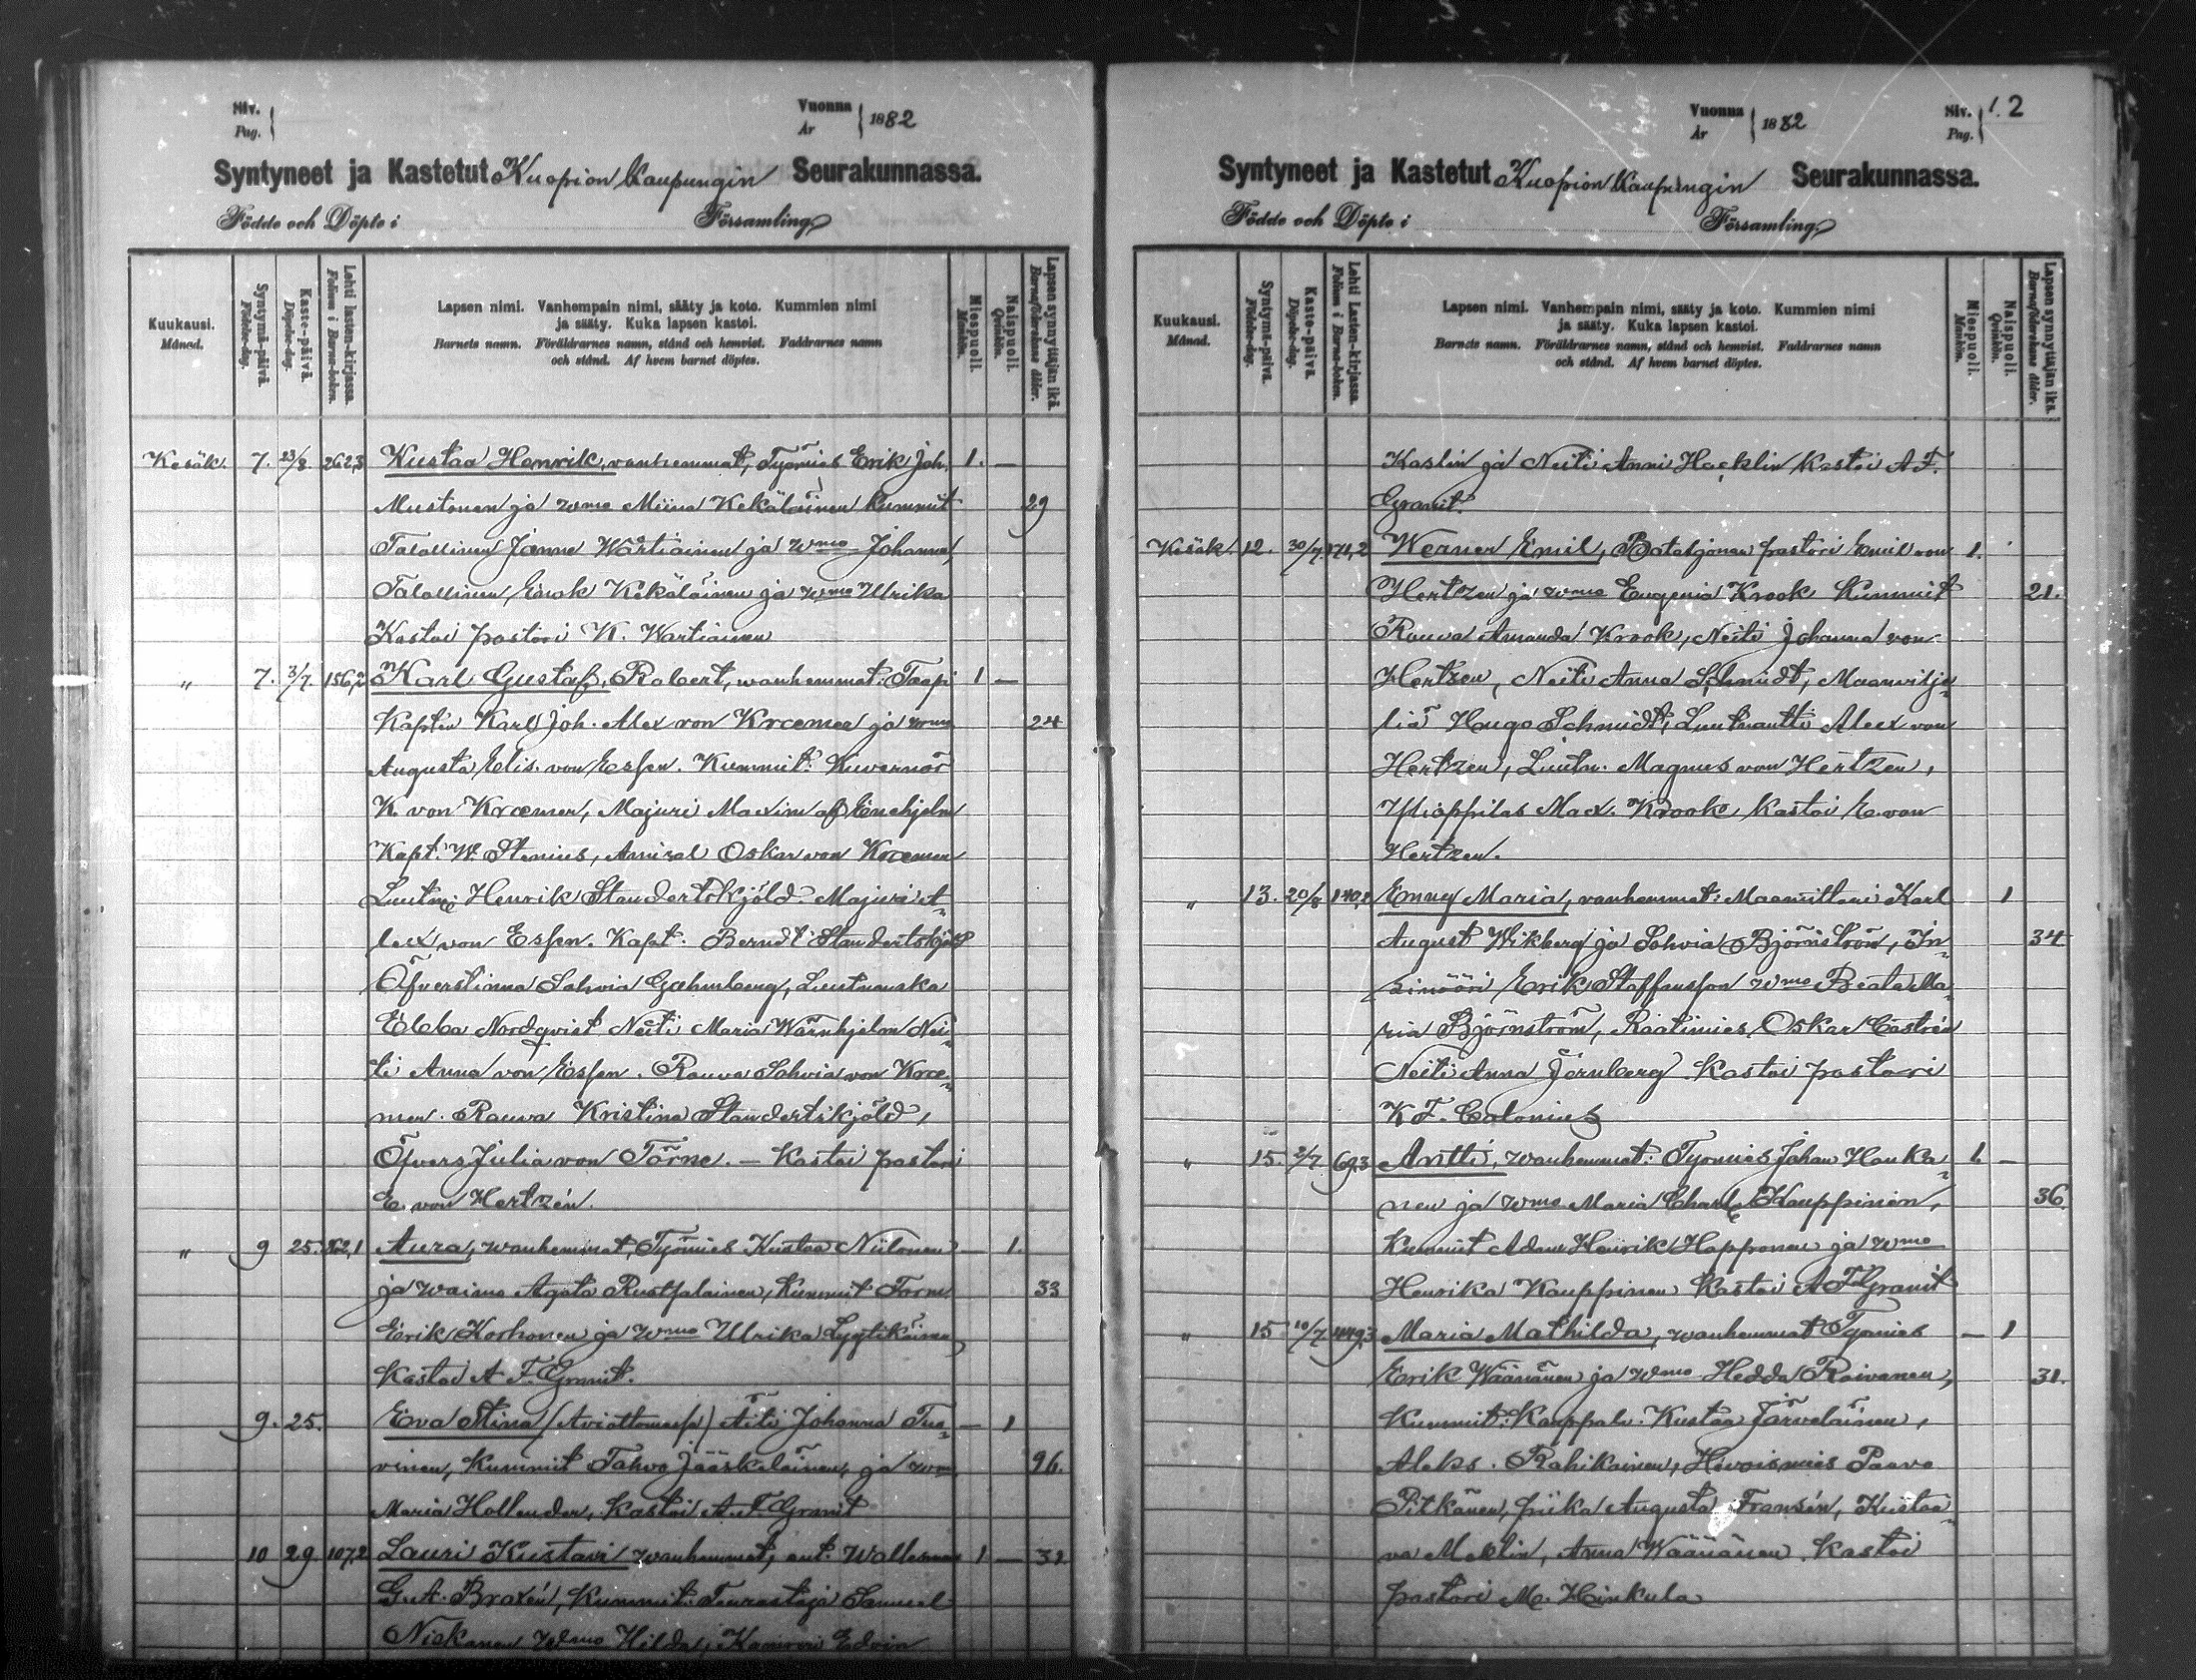 Siv.
Pag.
Vuonna
År
1882
Syntyneet ja Kastetut Kuopion Kaupungin Seurakunnassa.
Födde och Döpte i Församling
Kuukausi.
Månad.
Syntymä-päivä.
Födelse-dag.
Kaste-päivä.
Döpelse-dag.
Lehti lasten-kirjassa.
Folium i Barna-boken.
Lapsen nimi. Vanhempain nimi, sääty ja koto. Kummien nimi
ja sääty. Kuka lapsen kastoi.
Barnets namn. Föräldrarnes namn, stånd och hemvist. Faddrarnes namn
och stånd. Af hvem barnet döptes.
Miespuoli.
Mankön.
Naispuoli.
Qvinkön.
Lapsen synnyttäjän ikä.
Barnaföderskans ålder.
Kesäk. 7. 23/8. 262,3 Kustaa Henrik, vanhemmat, Työmies Erik Joh. 1. —
Mustonen ja wmo Miina Kekäläinen Kummit 29
Talollinen Janne Wartiainen ja wmo Johanna,
Talollinen Kekäläinen ja wmo Ulrika
Kastoi pastori K. Wartiainen
" 7. 3/7. 156,2 Karl Gustaf, Robert, wanhemmat: Taapi 1 —
Kapten Karl Joh. Alex von Kræmer ja wmo 24
Augusta Elis. von Essen. Kummit: Kuvernör
K. von Kræmer, Majuri Maxim af Enehjelm
Kapt. W. Stenius, Amiral Oskar von Kræmer
Luutn: Henrik Standertskjöld. Majuri A-
lex von Essen. Kapt. Berndt Standertskjöld
Öfverstinna Sohvia Gahmberg, Luutnanska
Ebba Nordqvist Neiti Maria Wärnhjelm Nei-
ti Anna von Essen. Rouva Sohvia von Kræ-
mer. Rouwa Kristina Standertskjöld,
Öfvers Julia von Törne. — Kastoi pastori
E. von Hertzén.
" 9 25. 82,1 Aura, wanhemmat, Työmies Kustaa Niilonen — 1.
ja waimo Agata Ruotsalainen, Kummit Torm 33
Erik Korhonen ja wmo Ulrika Lyytikäinen
Kastoi A. F. Granit.
9. 25. Eva Stina (Aviottomassa) Äiti Johanna Tua- — 1
vinen, Kummit Tahvo Jääskeläinen, ja wmo 26.
Maria Hollender, Kastoi A. F. Granit
10 29. 107,2 Lauri Kustavi wanhemmat, Wallesman 1 — 32
G. A. Braxén, Kummit: Teurastaja Samuel
Niskanen wmo Hilda, Kamreri Edvin
Vuonna
År
1882
Siv.
Pag.
12
Syntyneet ja Kastetut Kuopion Kaupungin Seurakunnassa.
Födde och Döpte i Församling
Kuukausi.
Månad.
Syntymä-päivä.
Födelse-dag.
Kaste-päivä.
Döpelse-dag.
Lehti Lasten-kirjassa.
Folium i Barna-boken.
Lapsen nimi. Vanhempain nimi, sääty ja koto. Kummien nimi
ja sääty. Kuka lapsen kastoi.
Barnets namn. Föräldrarnes namn, stånd och hemvist. Faddrarnes namn
och stånd. Af hvem barnet döptes.
Miespuoli.
Mankön.
Naispuoli.
Qvinkön.
Lapsen synnyttäjän ikä.
Barnaföderskans ålder.
Kaslin ja Neiti Anni Hacklin Kastoi A. F.
Granit.
Kesäk. 12. 30/7. 171,2 Werner Emil, Bataljonan pastori Emil von 1.
Hertzen ja wmo Eugenia Krook Kummit 21.
Rouva Amanda Krook, Neiti Johanna von
Hertzen, Neiti Anna Schmidt, Maanvilje-
liä Hugo Schmidt, Luutnantti Alex von
Hertzen, Luutn. Magnus von Hertzen,
Yliappilas Max. Krook, Kastoi E. von
Hertzen.
" 13. 20/8 140,2 Enny Maria, vanhemmat: Maamittari Karl 1
August Wikberg ja Sohvia Björnström, In- 34
sinööri Erik Staffansson wmo Beata Ma-
ria Björnström, Raatimies Oskar Castrén
Neiti Anna Jernberg Kastoi pastori
K F. Calonius
" 15. 2/7. 69,3 Antti, wanhemmat: Työmies Johan Hanka- 1. —
nen ja wmo Maria Charl: Kauppinen, 36.
Kummit Adam Henrik Happonen ja wmo
Henrika Kauppinen Kastoi A F Granit
" 15. 10/7. Maria Mathilda, wanhemmat Työmies — 1
Erik Wäänänen ja wmo Hedda Roivanen, 31.
Kummit: Kauppalv. Kustaa Järveläinen,
Aleks. Rahikainen, Hevoismies Paavo
Pitkänen, piika Augusta Fransén, Kustaa-
va Meklin, Anna Wäänänen Kastoi
pastori M. Hinkula